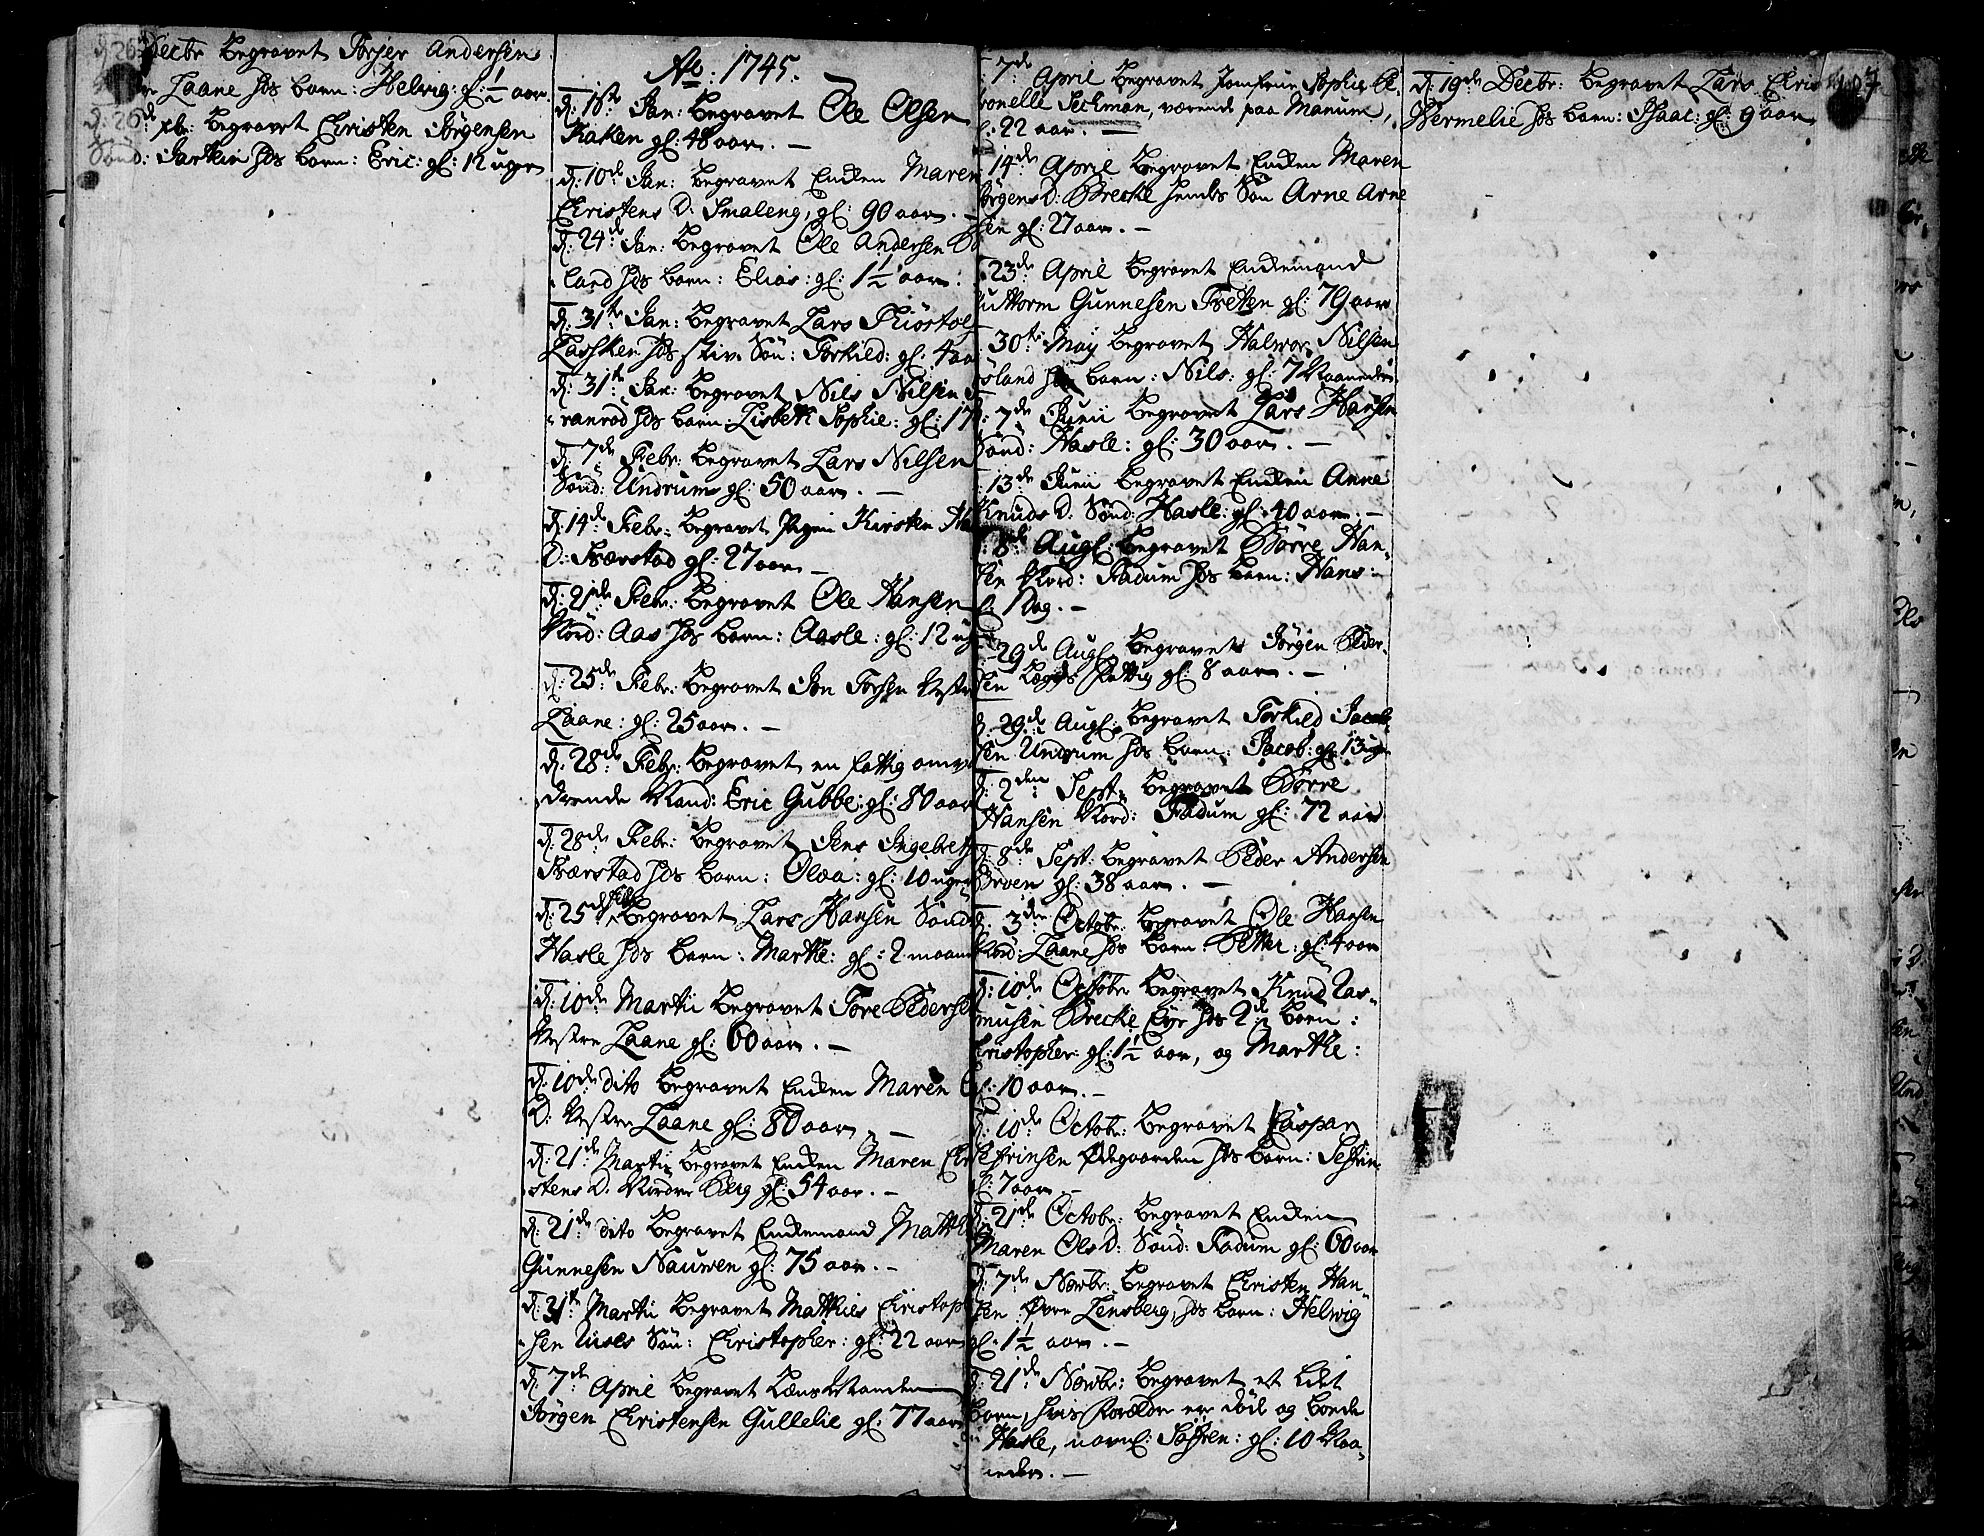 d: 26 Decbr begravet Torjer Andersen
Laane hds barn: Helvig: gl: ½ aar
d: 26de xbr: begravet Christen Jørgensen
Sønd: Jartein hds barn: Eric: gl: 12 uger
Ao: 1745.
d: 1ste Jan: begravet Ole Olsen
Raken gl: 48 aar. —
d: 10de Jan: begravet Enken Maren
Christens D: Smaleng, gl: 90 aar. —
d: 24de Jan: begravet Ole Andersen
land hds barn: Elias: gl: 1½ aar:
d: 31te Jan: begravet Lars Thiøstol
Larsken hds stiv Søn: Torkild: gl: 4 aar
d: 31te Jan: begravet Nils Nilsen
ranrød hds barn: Lisbeth Sophie: gl: 17
d: 7de Febr: begravet Lars Nilsen
Sønd: Undrum gl: 50 aar. —
d: 14de Febr: begravet Pigen Kirsten
D: Bærstad gl: 27 aar —
d: 21de Febr: begravet Ole Hansen
Nord: Aas hds barn: Aasle: gl: 12 ug
d: 25de Febr: begravet Jon Torsen Vestre
Laane: gl: 25 aar. —
d: 28de Febr: begravet en fattig omva
drende Mand: Eric Gubbe: gl: 80 aar
d: 28de Febr: begravet Jens Ingebrets
Bærstad hds barn: Oloa: gl: 10 uger
d: 25de Febr begravet Lars Hansen Sønd
Hasle hds barn: Marthe: gl: 2 maan
d: 10de Martii begravet Tore Pedersen
Vestre Laane gl: 60 aar. —
d: 10de dito begravet Enken Maren
D: Vestre Laane gl: 80 aar —
d: 21de Martii begravet Enken Maren Chri
stens D: Nordre Berg gl: 54 aar. —
d: 21de dito begravet Enkemand Matth
Gunnesen Nauwen gl: 75 aar. —
d: 31te Martii begravet Matthies Christoph
sen Unses Søn: Christopher: gl: 22 aar
d: 7de April begravet Læns Manden
Jørgen Christensen Gullelie gl: 77 aar
7de April begravet Jomfrue Sophie
ronelle Seckman, værende paa Manum,
gl: 22 aar. —
14de April begravet Enken Maren
Jørgens D: Brecke hendes Søn Arne Arne
sen gl: 27 aar. —
23de April begravet Enkemand
Guttorm Gunnesen Tretten gl: 79 aar
30te May begravet Halwor Nilsen
island hds barn: Nils: gl: 7 Maaneder
d: 7de Junii begravet Lars Hansen
Sønd: Hasle: gl: 30 aar. —
13de Junii begravet Enken Anne
Knuds D: Sønd: Hasle: gl: 40 aar. —
8de Aug: begravet Børre Han-
sen Nord: Fadum hds barn: Hans:
gl: 1 Dag. —
29de Aug: begravet Jørgen Peder-
sen Lægds Fattig gl: 8 aar. —
d: 29de Aug: begravet Torkild Jacob
sen Undrum hds barn: Jacob: gl: 13 uger
d: 2den Sept: begravet Børre
Hansen Nord: Fadum gl: 72 aar.
d: 8de Sept: begravet Peder Andersen
Orven gl: 38 aar. —
d: 3de Octobr: begravet Ole Hansen
Nord: Laane hds barn: Petter: gl: 4 aar
d: 10de Octobr: begravet Knud Ras-
musen Brecke Eye hds 2de barn:
Christopher: gl: 1½ aar, og Marthe:
gl: 10 aar. —
d: 10de Octobr: begravet Caspar
Sefrinsen Ødegaarden hds barn: Sefrin
gl: 7 aar —
d: 21de Octobr: begravet Enken
Maren Ols D: Sønd: Fadum gl: 60 aar
d: 7de Novbr: begravet Christen Han-
sen Øvre Lensberg, hds barn: Helwig
gl: 1½ aar. —
d: 21de Novbr: begravet et Lidet
barn, hvis Forældre er døde og boede
Hasle, navnl: Søfren: gl: 10 Maa-
neder. —
d: 19de Decbr: begravet Lars Chris
Hermelie hds barn: Isaac: gl: 9 aar
107